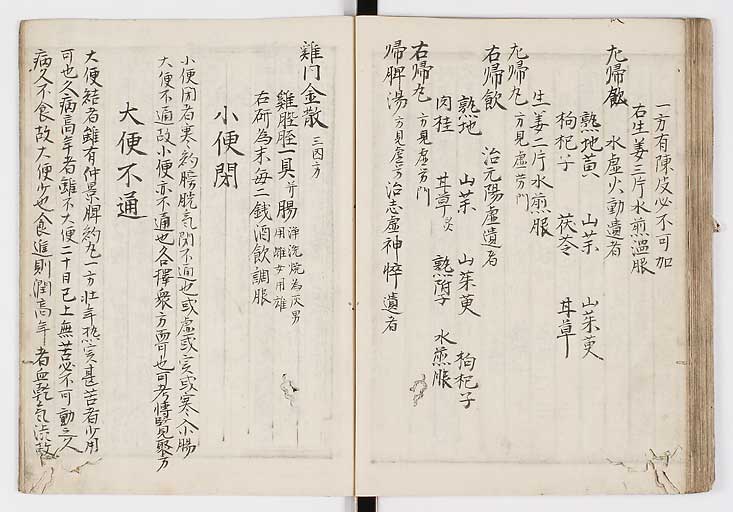 一方有陳皮必不可加
右生姜三片水煎温服
左帰飲 水虚火動遺者
熟地黄 山茱 山茱萸
枸杞子 茯苓 甘草
生姜二片水煎服
左帰丸 方見虚労門
右帰飲 治元陽虚遺者
熟地 山茱 山茱萸 枸杞子
肉桂 甘草炙 熟附子 水煎服
右帰丸 方見虚労門
帰脾湯 方見虚労 治志虚神悴遺者
雞门金散 三因方
雞膍胵一具 并腸 浄洗焼為灰男
用雌女用雄
右研為末每二銭酒飲調服
小便閉
小便閉者寒約膀胱気閉不通也或虚或実或寒小腸
大便不通故小便亦不通也各擇衆方而也可考慱覧聚方
大便不通
大便結者雖有仲景脾約丸一方壮年熱実甚苦者少用
可也久病高年者雖不大便二十日已上無苦必不可動之人
病久不食故大便少也食進則潤高年者血乾気渋故